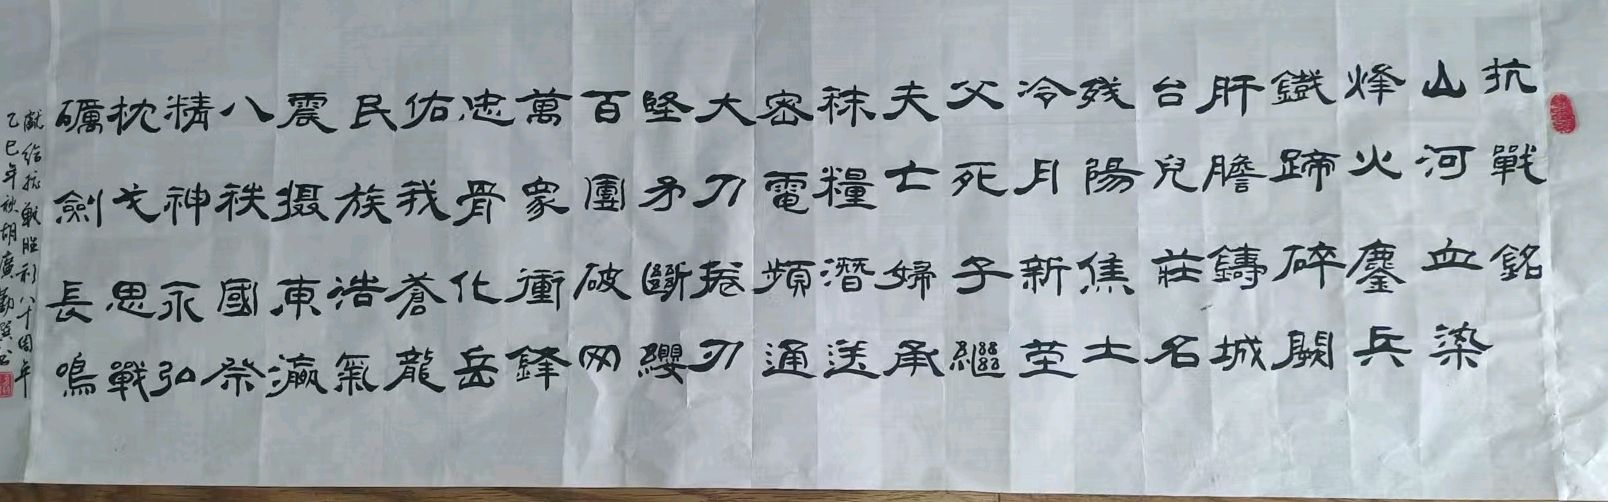 抗戰銘
山河血染
烽火鏖兵
鐵蹄碎闕
肝膽鑄城
台兒莊名
残陽焦土
冷月新茔
父死子繼
夫亡婦承
秣糧潛送
密電頻通
大刀捲刃
堅矛斷纓
百團破网
萬衆衝鋒
忠骨化岳
佑我蒼龍
民族浩氣
震摄東瀛
八秩國祭
精神永弘
枕戈思戰
礪劍長鳴
獻给抗戰胜利八十周年
乙巳年秋胡廣勤撰书